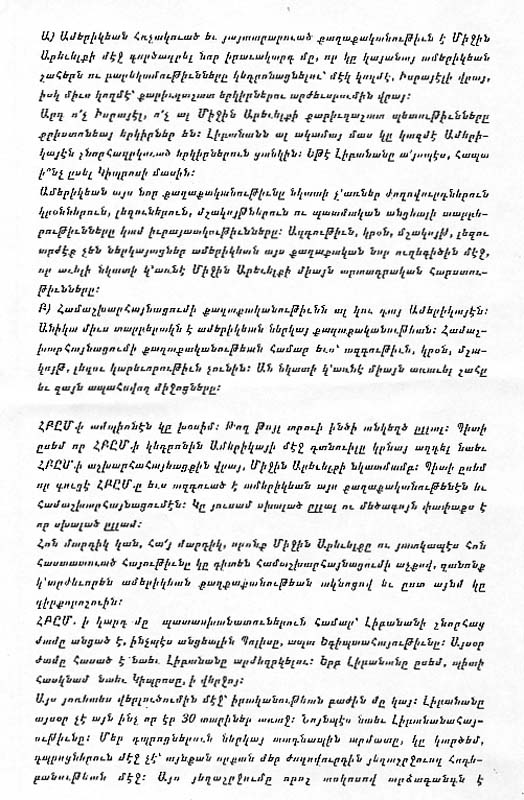 Ա) Ամերիկեան հռչակուած եւ յայտարարուած քաղաքականութիւն է Միջին
Արեւելքի մէջ գործադրել նոր իրաւակարգ մը, որ կը կայանայ ամերիկեան
շահերն ու բարեկամութիւնները կեդրոնացնելու՝ մէկ կողմէ, Իսրայէլի վրայ,
իսկ միւս կողմէ՝ քարիւղաշատ երկիրներու արժեւորումին վրայ։
Արդ ո՛չ Իսրայէլ, ո՛չ ալ Միջին Արեւելքի քարիւղաշատ պետութիւնները
քրիստոնեայ երկիրներ են։ Լիբանանն ալ ակամայ մաս կը կազմէ Ամերի-
կայէն շնորհազրկուած երկիրներուն ցանկին։ Եթէ Լիբանանը ա՛յսպէս, հապա
ի՞նչ ըսել Կիպրոսի մասին։
Ամերիկեան այս նոր քաղաքականութիւնը նկատի չ՚առներ ժողովուրդներուն
կրօններուն, լեզուներուն, մշակոյթներուն ու պատմական անցեալի տարբե-
րութիւնները կամ իւրայատկութիւնները։ Ազգութիւն, կրօն, մշակոյթ, լեզու
արժէք չեն ներկայացներ ամերիկեան այս քաղաքական նոր ուղեգիծին մէջ,
որ աւելի նկատի կ՚առնէ Միջին Արեւելքի միայն արտադրական հարստու-
թիւնները։
Բ) Համաշխարհայնացումի քաղաքականութիւնն ալ կու գայ Ամերիկայէն։
Անիկա միւս տարբերակն է ամերիկեան ներկայ քաղաքականութեան։ Համաշ-
խարհայնացումի քաղաքականութեան համար եւս՝ ազգութիւն, կրօն, մշա-
կոյթ, լեզու կարեւորութիւն չունին։ Ան նկատի կ՚առնէ միայն առաւել շահը
եւ զայն ապահովող միջոցները։
ՀԲԸՄ-ի ամպիոնէն կը խօսիմ։ Թող թոյլ տրուի ինծի անկեղծ ըլլալ։ Պիտի
ըսեմ որ ՀԲԸՄ-ի կեդրոնին Ամերիկայի մէջ գտնուիլը կրնայ ազդել նաեւ
ՀԲԸՄ-ի աշխարհահայեացքին վրայ, Միջին Արեւելքի նկատմամբ։ Պիտի ըսեմ
որ գուցէ ՀԲԸՄ-ը եւս ազդուած է ամերիկեան այս քաղաքականութենէն եւ
համաշխարհայնացումէն։ Կը յուսամ սխալած ըլլալ ու մեծագոյն փափաքս է
որ սխալած ըլլամ։
Հոն մարդիկ կան, հա՛յ մարդիկ, որոնք Միջին Արեւելքը ու յատկապէս հոն
հաստատուած հայութիւնը կը դիտեն համաշխարհայնացումի աչքով, զանոնք
կ՚արժեւորեն ամերիկեան քաղքաքանութեան ակնոցով եւ ըստ այնմ կը
դիրքորոշուին։
ՀԲԸՄ. ի կարգ մը պատասխանատուներուն համար՝ Լիբանանի շնորհաց
ժամը անցած է, ինչպէս անցեալին Պոլիսը, ապա Եգիպտահայութիւնը։ Այսօր
ժամը հասած է նաեւ Լիբանանը արժեզրկելու։ Երբ Լիբանանը ըսեմ, պիտի
հասկնամ նաեւ Կիպրոսը, ի վերջոյ։
Այս յոռետես վերլուծումին մէջ՝ իրականութեան բաժին մը կայ։ Լիբանանը
այսօր չէ այն ինչ որ էր 30 տարիներ առաջ։ Նոյնպէս նաեւ Լիբանանահայ-
ութիւնը։ Մեր դպրոցներուն ներկայ տագնապին արմատը, կը կարծեմ,
դպրոցներուն մէջ չէ՝ այնքան որքան մեր ժողովուրդին յեղաշրջուող հոգե-
բանութեան մէջ։ Այս յեղաշրջումը որոշ առումով արձագանգն է